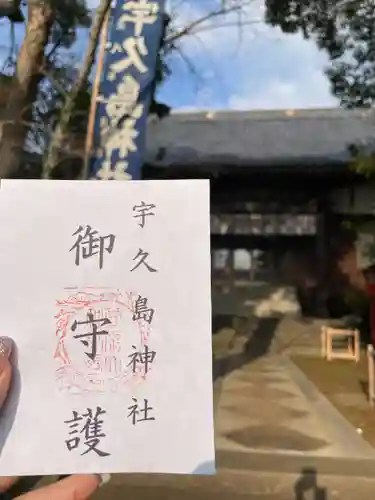 宇久島神社
宇久島神社
御守護